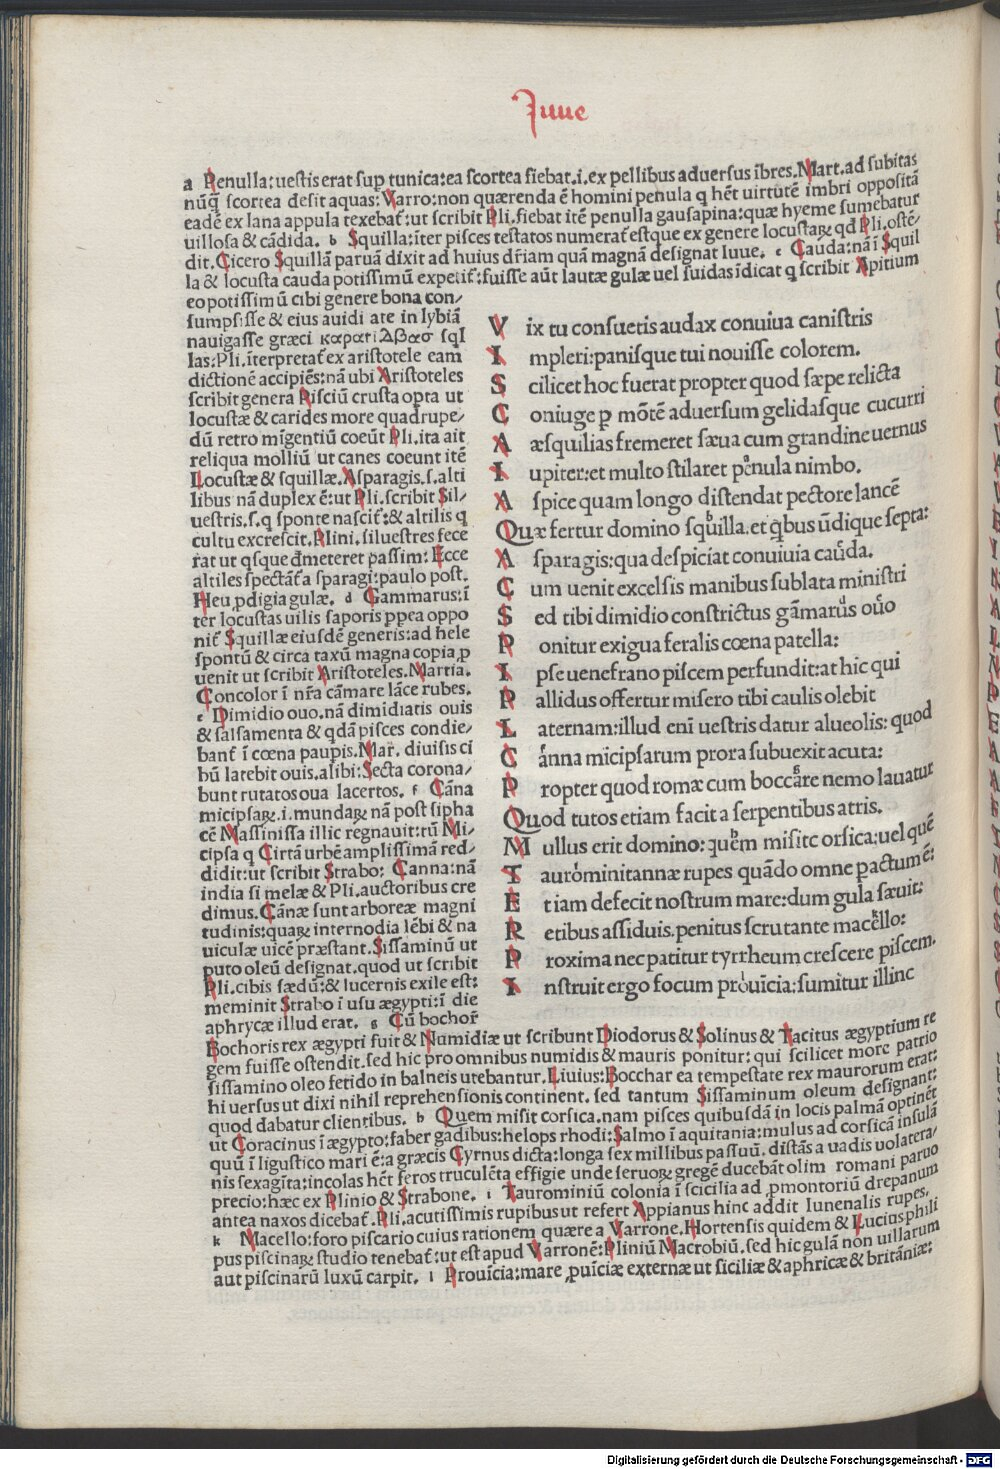 Juue
a Penulla:uestis erat sup tunica:ea scortea fiebat.i.ex pellibus aduersus ībres.Mart.ad subitas
nūq̄ scortea desit aquas:Varro:non quærenda ē homini penula q hēt uirtutē imbri oppositā
eadē ex lana appula texebat̄:ut scribit Pli.fiebat itē penulla gausapina:quæ hyeme sumebatur
uillosa & cādida. b Squilla:īter pisces testatos numerat̄ estque ex genere locustaꝝ qd̄ Pli.ostē/
dit.Cicero Squillā paruā dixit ad huius dr̄iam quā magnā designat Iuue. c Cauda:nā ī Squil
la & locusta cauda potissimū expetit̄:fuisse aūt lautæ gulæ uel suidas īdicat q scribit Apitium
eo potissimū cibi genere bona con/
sumpsisse & eius auidi ate in lybiā
nauigasse græci καρατιΔβασ sql
las:Pli.īterpretat̄ ex aristotele eam
dictionē accipiēs:nā ubi Aristoteles
scribit genera Pisciū crusta opta ut
locustæ & carides more quadrupe/
dū retro mīgentiū coeūt Pli.ita ait
reliqua molliū ut canes coeunt itē
Locustæ & squillæ.Asparagis.s.alti
libus nā duplex ē:ut Pli.scribit Sil/
uestris.s.q sponte nascit̄:& altilis q
cultu excrescit.Plini.siluestres fece
rat ut qsque dmeteret passim: Ecce
altiles spectāt̄ a sparagi:paulo post.
Heu ꝓdigia gulæ. d Gammarus:ī
ter locustas uilis saporis ppea oppo
nit̄ Squillæ eiusdē generis:ad hele
spontū & circa taxū magna copia ꝓ
uenit ut scribit Aristoteles.Martia.
Concolor ī nr̄a cāmare lāce rubes.
e Dimidio ouo.nā dimidiatis ouis
& salsamenta & qdā pisces condie/
bant̄ ī cœna paupis.Mar̄. diuisis ci
bū latebit ouis.alibi:Secta corona/
bunt rutatos oua lacertos. f Cāna
micipsaꝝ.i.mundaꝝ nā post sipha
cē Massinissa illic regnauit:tū Mi/
cipsa q Cirtā urbē amplissimā red/
didit:ut scribit Strabo: Canna:nā
india si melæ & Pli.auctoribus cre
dimus.Cānæ sunt arboreæ magni
tudinis:quaꝝ internodia lēbi & na
uiculæ uicē præstant.Sissaminū ut
puto oleū designat.quod ut scribit
Pli.cibis sædū:& lucernis exile est:
meminit Strabo ī usu ægypti:ī die
aphrycæ illud erat. g Cū bochor̄
V ix tu consuetis audax conuiua canistris
I mpleri:panisque tui nouisse colorem.
S cilicet hoc fuerat propter quod sæpe relicta
C oniuge p̱ mōtē aduersum gelidasque cucurri
A æsquilias fremeret sæua cum grandine uernus
I upiter:et multo stilaret pēnula nimbo.
A spice quam longo distendat pectore lancē
Quæ fertur domino sq̇uilla.et qbus ūdique septa:
A sparagis:qua despiciat conuiuia caūda.
C um uenit excelsis manibus sublata ministri
S ed tibi dimidio constrictus gāmarus ouo
P onitur exigua feralis cœna patella:
I pse uenefrano piscem perfundit:at hic qui
P allidus offertur misero tibi caulis olebit
L aternam:illud enī uestris datur alueolis: quod
C anna micipsarum prora subuexit acuta:
P ropter quod romæ cum boccare nemo lauatur
Quod tutos etiam facit a serpentibus atris.
M ullus erit domino: quem misitc orsica:uel quē
T aurominitannæ rupes quādo omne pactum ē:
E tiam defecit nostrum mare:dum gula sæuit:
R etibus assiduis.penitus scrutante macello:
P roxima nec patitur tyrrheum crescere piscem.
I nstruit ergo focum prouīcia:sumitur illinc
Bochoris rex ægypti fuit & Numidiæ ut scribunt Diodorus & Solinus & Tacitus ægyptium re
gem fuisse ostendit.sed hic pro omnibus numidis & mauris ponitur: qui scilicet more patrio
sissamino oleo fetido in balneis utebantur.Liuius:Bocchar ea tempestate rex maurorum erat:
hi uersus ut dixi nihil reprehensionis continent. sed tantum Sissaminum oleum designant:
quod dabatur clientibus. h Quem misit corsica.nam pisces quibusdā in locis palmā optinēt
ut Coracinus ī ægypto:faber gadibus:helops rhodi:Salmo ī aquitania:mulus ad corsicā insulā
quū ī ligustico mari ē:a græcis Cyrnus dicta:longa sex millibus passuū. distās a uadis uolatera/
nis sexagīta:incolas hēt feros truculēta effigie unde seruoꝝ gregē ducebāt olim romani paruo
precio:hæc ex Plinio & Strabone. i Taurominiū colonia ī scicilia ad ꝓmontoriū drepanum
antea naxos dicebat̄.Pli.acutissimis rupibus ut refert Appianus hinc addit Iunenalis rupes.
k Macello:foro piscario cuius rationem quære a Varrone.Hortensis quidem & Lucius phili
pus piscinaꝝ studio tenebat̄:ut est apud Varronē:Pliniū Macrobiū.sed hic gulā non uillarum
aut piscinarū luxū carpit. l Prouīcia:mare ꝓuīciæ externæ ut siciliæ & aphricæ & britāniæ:
Digitalisierung gefördert durch die Deutsche Forschungsgemeinschaft - DFG